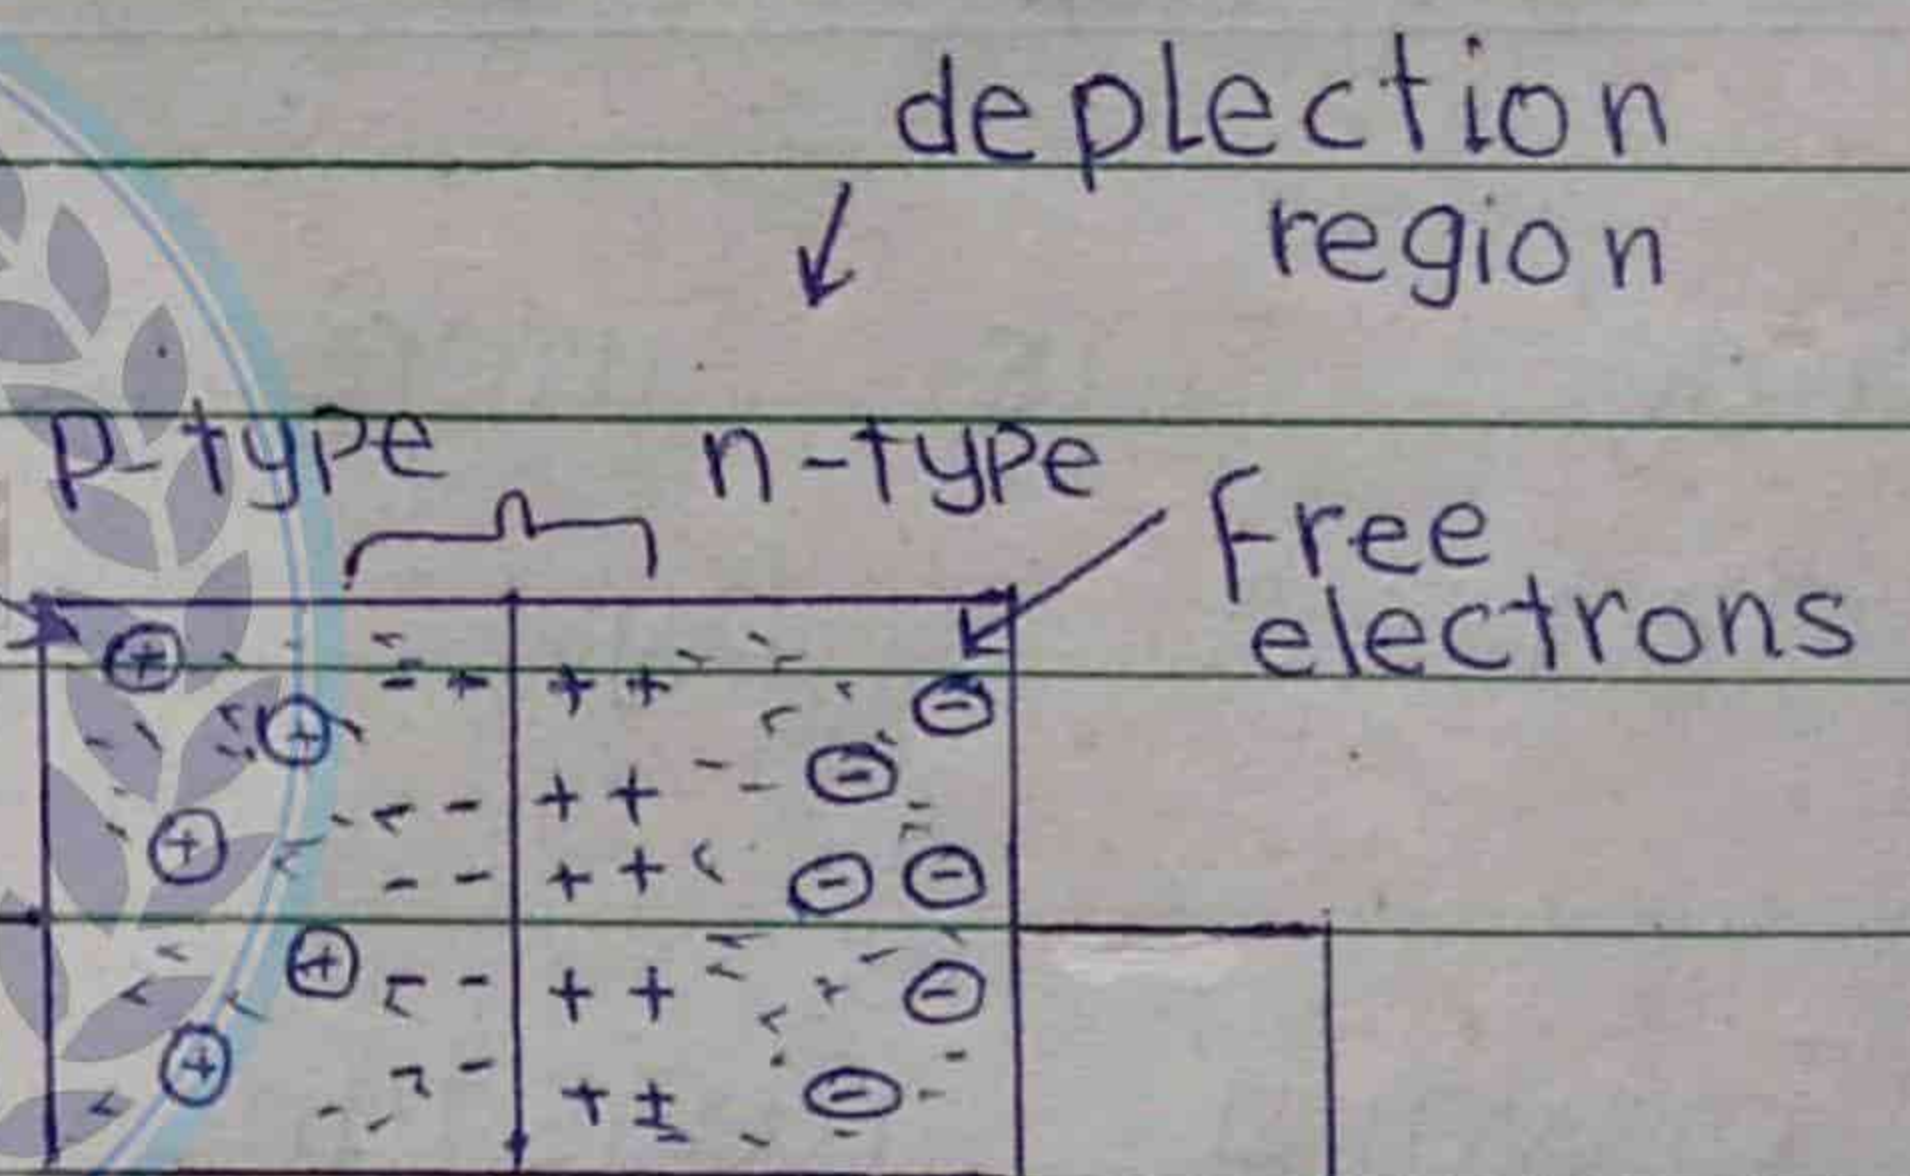 deplection
region
p-type n-type
Free
electrons
⊕ - +  + + ⊖
⊕ ⊖
- -  + +
⊕ - -  + + ⊖ ⊖
⊕ - -  + + ⊖
⊕ - -  + + ⊖